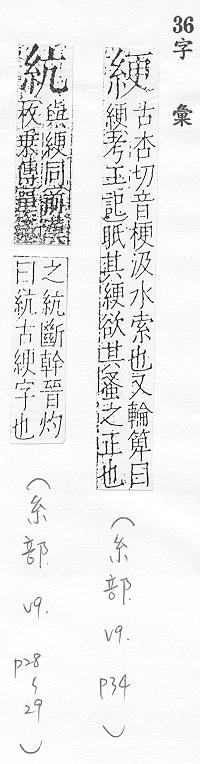 36字　彙
綆
古杏切音梗汲水索也又輪箄曰
綆考工記眂其綆欲其蚤之正也
（糸部 v9. p34）
統
與綆同前漢
枚乘傳單極
之統斷幹晉灼
曰統古綆字也
（糸部 v9. p28~29）